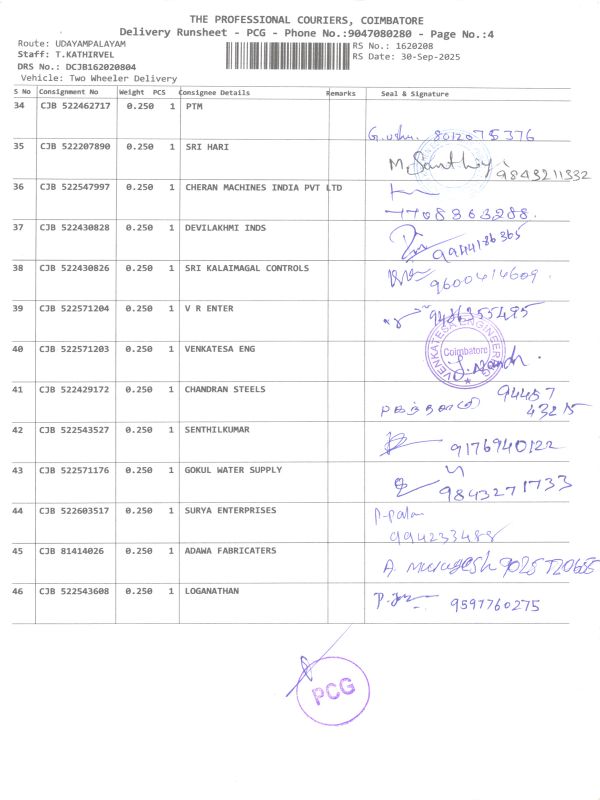 THE PROFESSIONAL COURIERS, COIMBATORE
Delivery Runsheet - PCG - Phone No.:9047080280 - Page No.:4
Route: UDAYAMPALAYAM RS No.: 1620208
Staff: T.KATHIRVEL RS Date: 30-Sep-2025
DRS No.: DCJB162020804
Vehicle: Two Wheeler Delivery
S No Consignment No Weight PCS Consignee Details Remarks Seal & Signature
34 CJB 522462717 0.250 1 PTM
G. usha. 8012075376
35 CJB 522207890 0.250 1 SRI HARI
M. Santhiya 9843211332
36 CJB 522547997 0.250 1 CHERAN MACHINES INDIA PVT LTD
7708863288.
37 CJB 522430828 0.250 1 DEVILAKHMI INDS
9944186365
38 CJB 522430826 0.250 1 SRI KALAIMAGAL CONTROLS
9600414609.
39 CJB 522571204 0.250 1 V R ENTER
9486355495
40 CJB 522571203 0.250 1 VENKATESA ENG
VENKATESA ENGINEERING
Coimbatore
41 CJB 522429172 0.250 1 CHANDRAN STEELS
94457
43215
42 CJB 522543527 0.250 1 SENTHILKUMAR
9176940122
43 CJB 522571176 0.250 1 GOKUL WATER SUPPLY
9843271733
44 CJB 522603517 0.250 1 SURYA ENTERPRISES
P-palan
994233488
45 CJB 81414026 0.250 1 ADAWA FABRICATERS
A. murugesh 9025720655
46 CJB 522543608 0.250 1 LOGANATHAN
9597760275
PCG